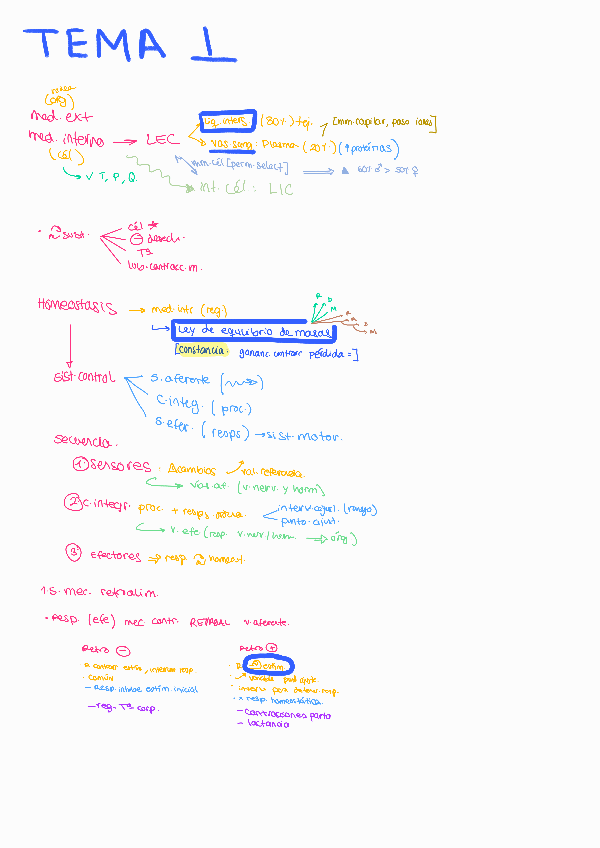 TEMA 1
(org)
med. ext
med. interno → LEC
(cél)
↳ V T, P, Q.
Liq. inters (80%) tej. [mm. capilar, paso iones]
vas. sang: Plasma (20%) (↑ proteínas)
mm. cél [perm. select] ⇒ ▲ 60% ♂ > 50% ♀
int. cél: LIC
· sust.
cél
⊖ desech.
Tª
lub. contracc. m.
Homeostasis → med. int (reg.)
↳ Ley de equilibrio de masas
[constancia: gananc. contrarr pérdida =]
sist. control
s. aferente
c. integ. (proc.)
s. efer. (resps) → sist motor.
secuencia.
1º sensores. Δ cambios val. referencia.
vas. af (v. nerv. y horm)
2º c. integr. proc. + resps
interv. ajust. (rango)
punto. ajust.
v. efe (resp. v. nerv/horm. ⇒ org)
3º efectores ⇒ resp homeost.
1.5. mec. retroalim.
· resp. (efe) mec contr. v. aferente.
Retro ⊖
contrarr estím, interior resp.
· común
- Resp. inhibe estím. inicial
- reg. Tª corp.
Retro ⊕
estim.
· x resp. homeostática.
- contracciones parto
- lactancia